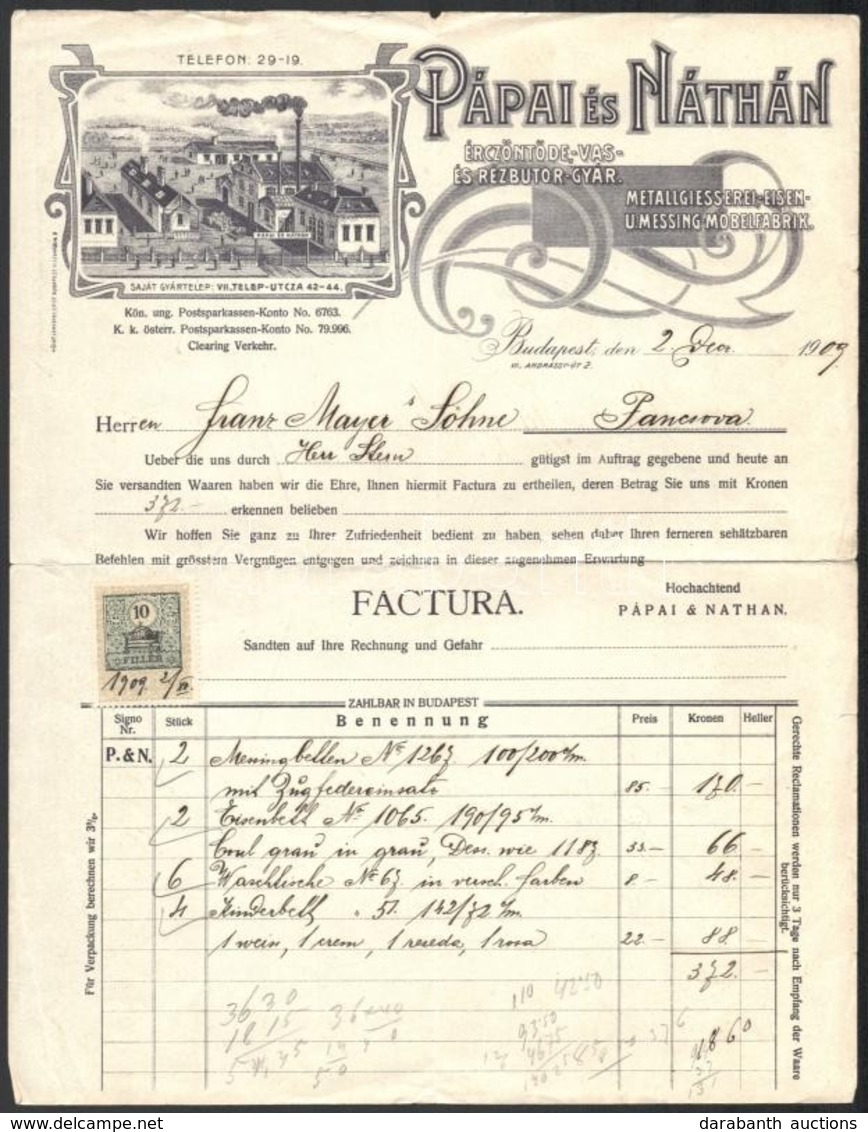 TELEFON: 29-19.
PÁPAI ÉS NÁTHÁN
ÉRCZÖNTÖDE,-VAS-
ÉS RÉZBUTOR-GYÁR.
METALLGIESSEREI,-EISEN-
U.MESSING-MÖBELFABRIK.
PÁPAI ÉS NÁTHÁN
SAJÁT GYÁRTELEP: VII, TELEP-UTCZA 42-44.
Kön. ung. Postsparkassen-Konto No. 6763.
K. k. österr. Postsparkassen-Konto No. 79.996.
Clearing Verkehr.
Budapest, den 2. Dez. 1909
VI. ANDRÁSSY-ÚT 2.
Herren Franz Mayer's Söhne Pancsova.
Ueber die uns durch Herr Stern gütigst im Auftrag gegebene und heute an
Sie versandten Waaren haben wir die Ehre, Ihnen hiermit Factura zu ertheilen, deren Betrag Sie uns mit Kronen
372.– erkennen belieben
Wir hoffen Sie ganz zu Ihrer Zufriedenheit bedient zu haben, sehen daher Ihren ferneren sehätzbaren
Befehlen mit grösstem Vergnügen entgegen und zeichnen in dieser angenehmen Erwartung
Hochachtend
FACTURA.
PÁPAI & NATHAN.
10
FILLÉR
1909 2/XII
Sandten auf Ihre Rechnung und Gefahr
ZAHLBAR IN BUDAPEST
Signo Nr. Stück Benennung Preis Kronen Heller
P. & N. 2 Messingbetten No 1267. 100/200 c/m.
mit Zugfedereinsatz 85.– 170.–
2 Eisenbett No 1065. 190/95 c/m.
grau in grau, Dess. wie 1187 33.– 66–
6 Waschtische No 67. in versch. farben 8.– 48.–
4 Kinderbett " 51. 142/72 c/m.
1 weis, 1 crem, 1 reseda, 1 rosa 22.– 88–
372.–
Für Verpackung berechnen wir 3%.
Gerechte Reclamationen werden nur 3 Tage nach Empfang der Waare
berücksichtigt.
3630
1815
110 4250
9350
4675
1860
www.delcampe.net
darabanth auctions